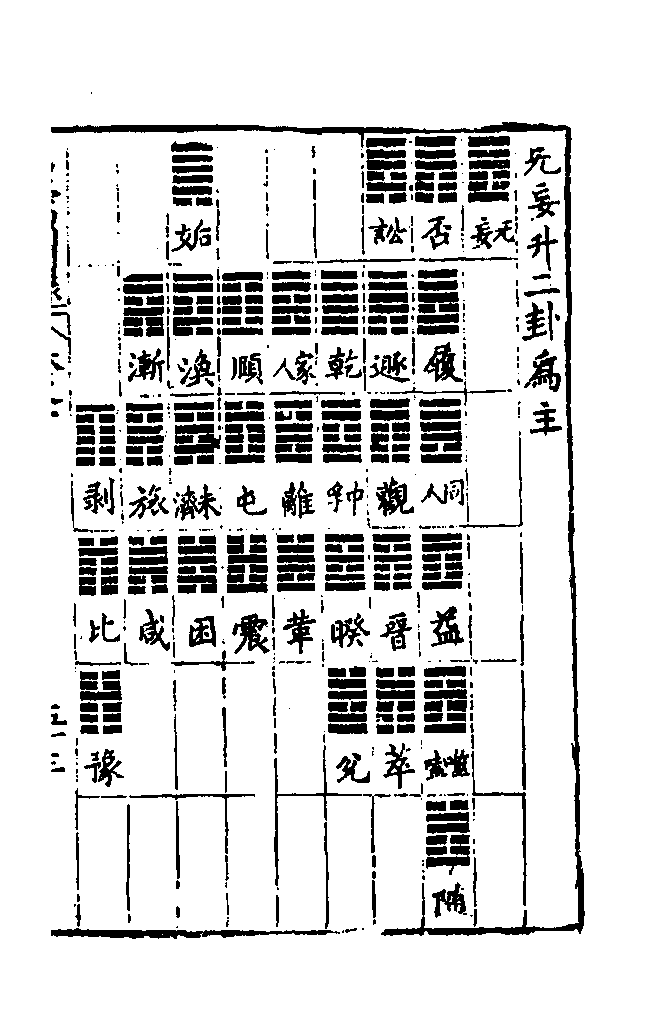 无妄升二卦為主
无妄
否 履 同人 益 噬嗑 隨
訟 遯 觀 晉 萃
乾 中孚 睽 兌
家人 離 革
頤 屯 震
姤 渙 未濟 困
漸 旅 咸
剥 比 豫